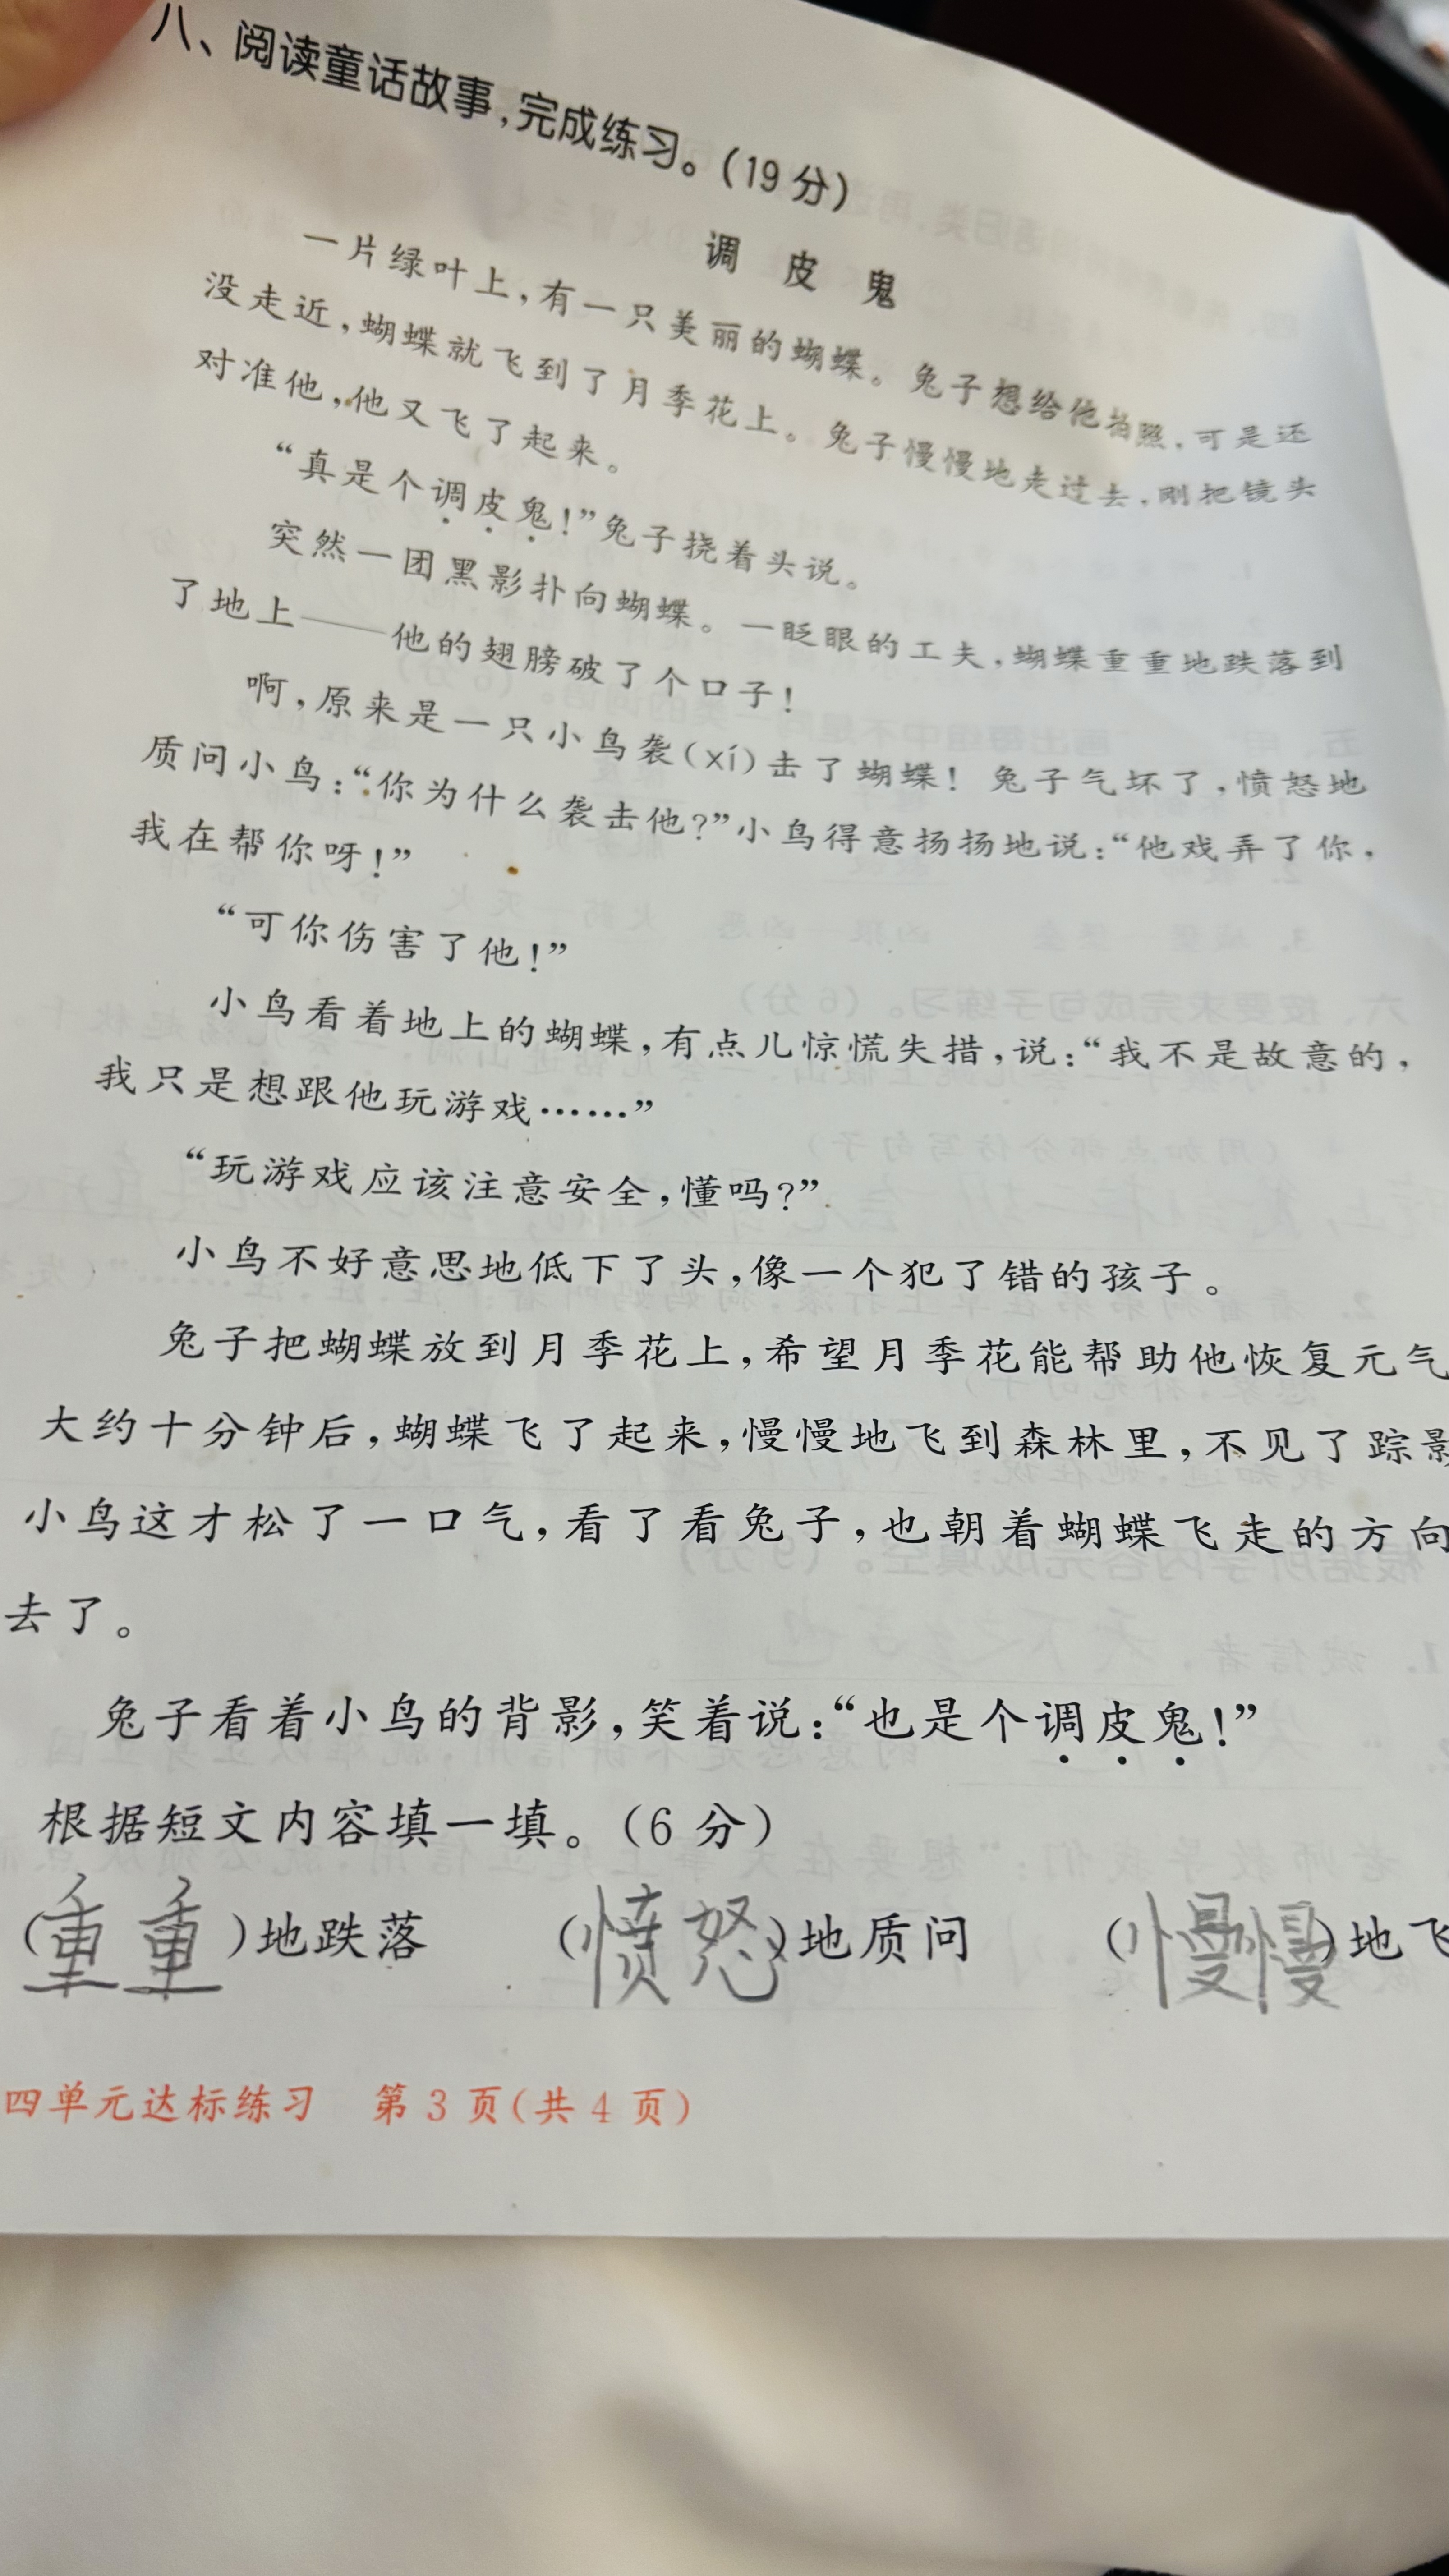 八、阅读童话故事,完成练习。(19分)
调皮鬼
一片绿叶上,有一只美丽的蝴蝶。兔子想给他拍照,可是还
没走近,蝴蝶就飞到了月季花上。兔子慢慢地走过去,刚把镜头
对准他,他又飞了起来。
“真是个调皮鬼!”兔子挠着头说。
突然一团黑影扑向蝴蝶。一眨眼的工夫,蝴蝶重重地跌落到
了地上——他的翅膀破了个口子!
啊,原来是一只小鸟袭(xí)击了蝴蝶!兔子气坏了,愤怒地
质问小鸟:“你为什么袭击他?”小鸟得意扬扬地说:“他戏弄了你,
我在帮你呀!”
“可你伤害了他!”
小鸟看着地上的蝴蝶,有点儿惊慌失措,说:“我不是故意的,
我只是想跟他玩游戏……”
“玩游戏应该注意安全,懂吗?”
小鸟不好意思地低下了头,像一个犯了错的孩子。
兔子把蝴蝶放到月季花上,希望月季花能帮助他恢复元气
大约十分钟后,蝴蝶飞了起来,慢慢地飞到森林里,不见了踪影
小鸟这才松了一口气,看了看兔子,也朝着蝴蝶飞走的方向
去了。
兔子看着小鸟的背影,笑着说:“也是个调皮鬼!”
根据短文内容填一填。(6分)
(重重)地跌落 (愤怒)地质问 (慢慢)地飞
四单元达标练习 第3页(共4页)